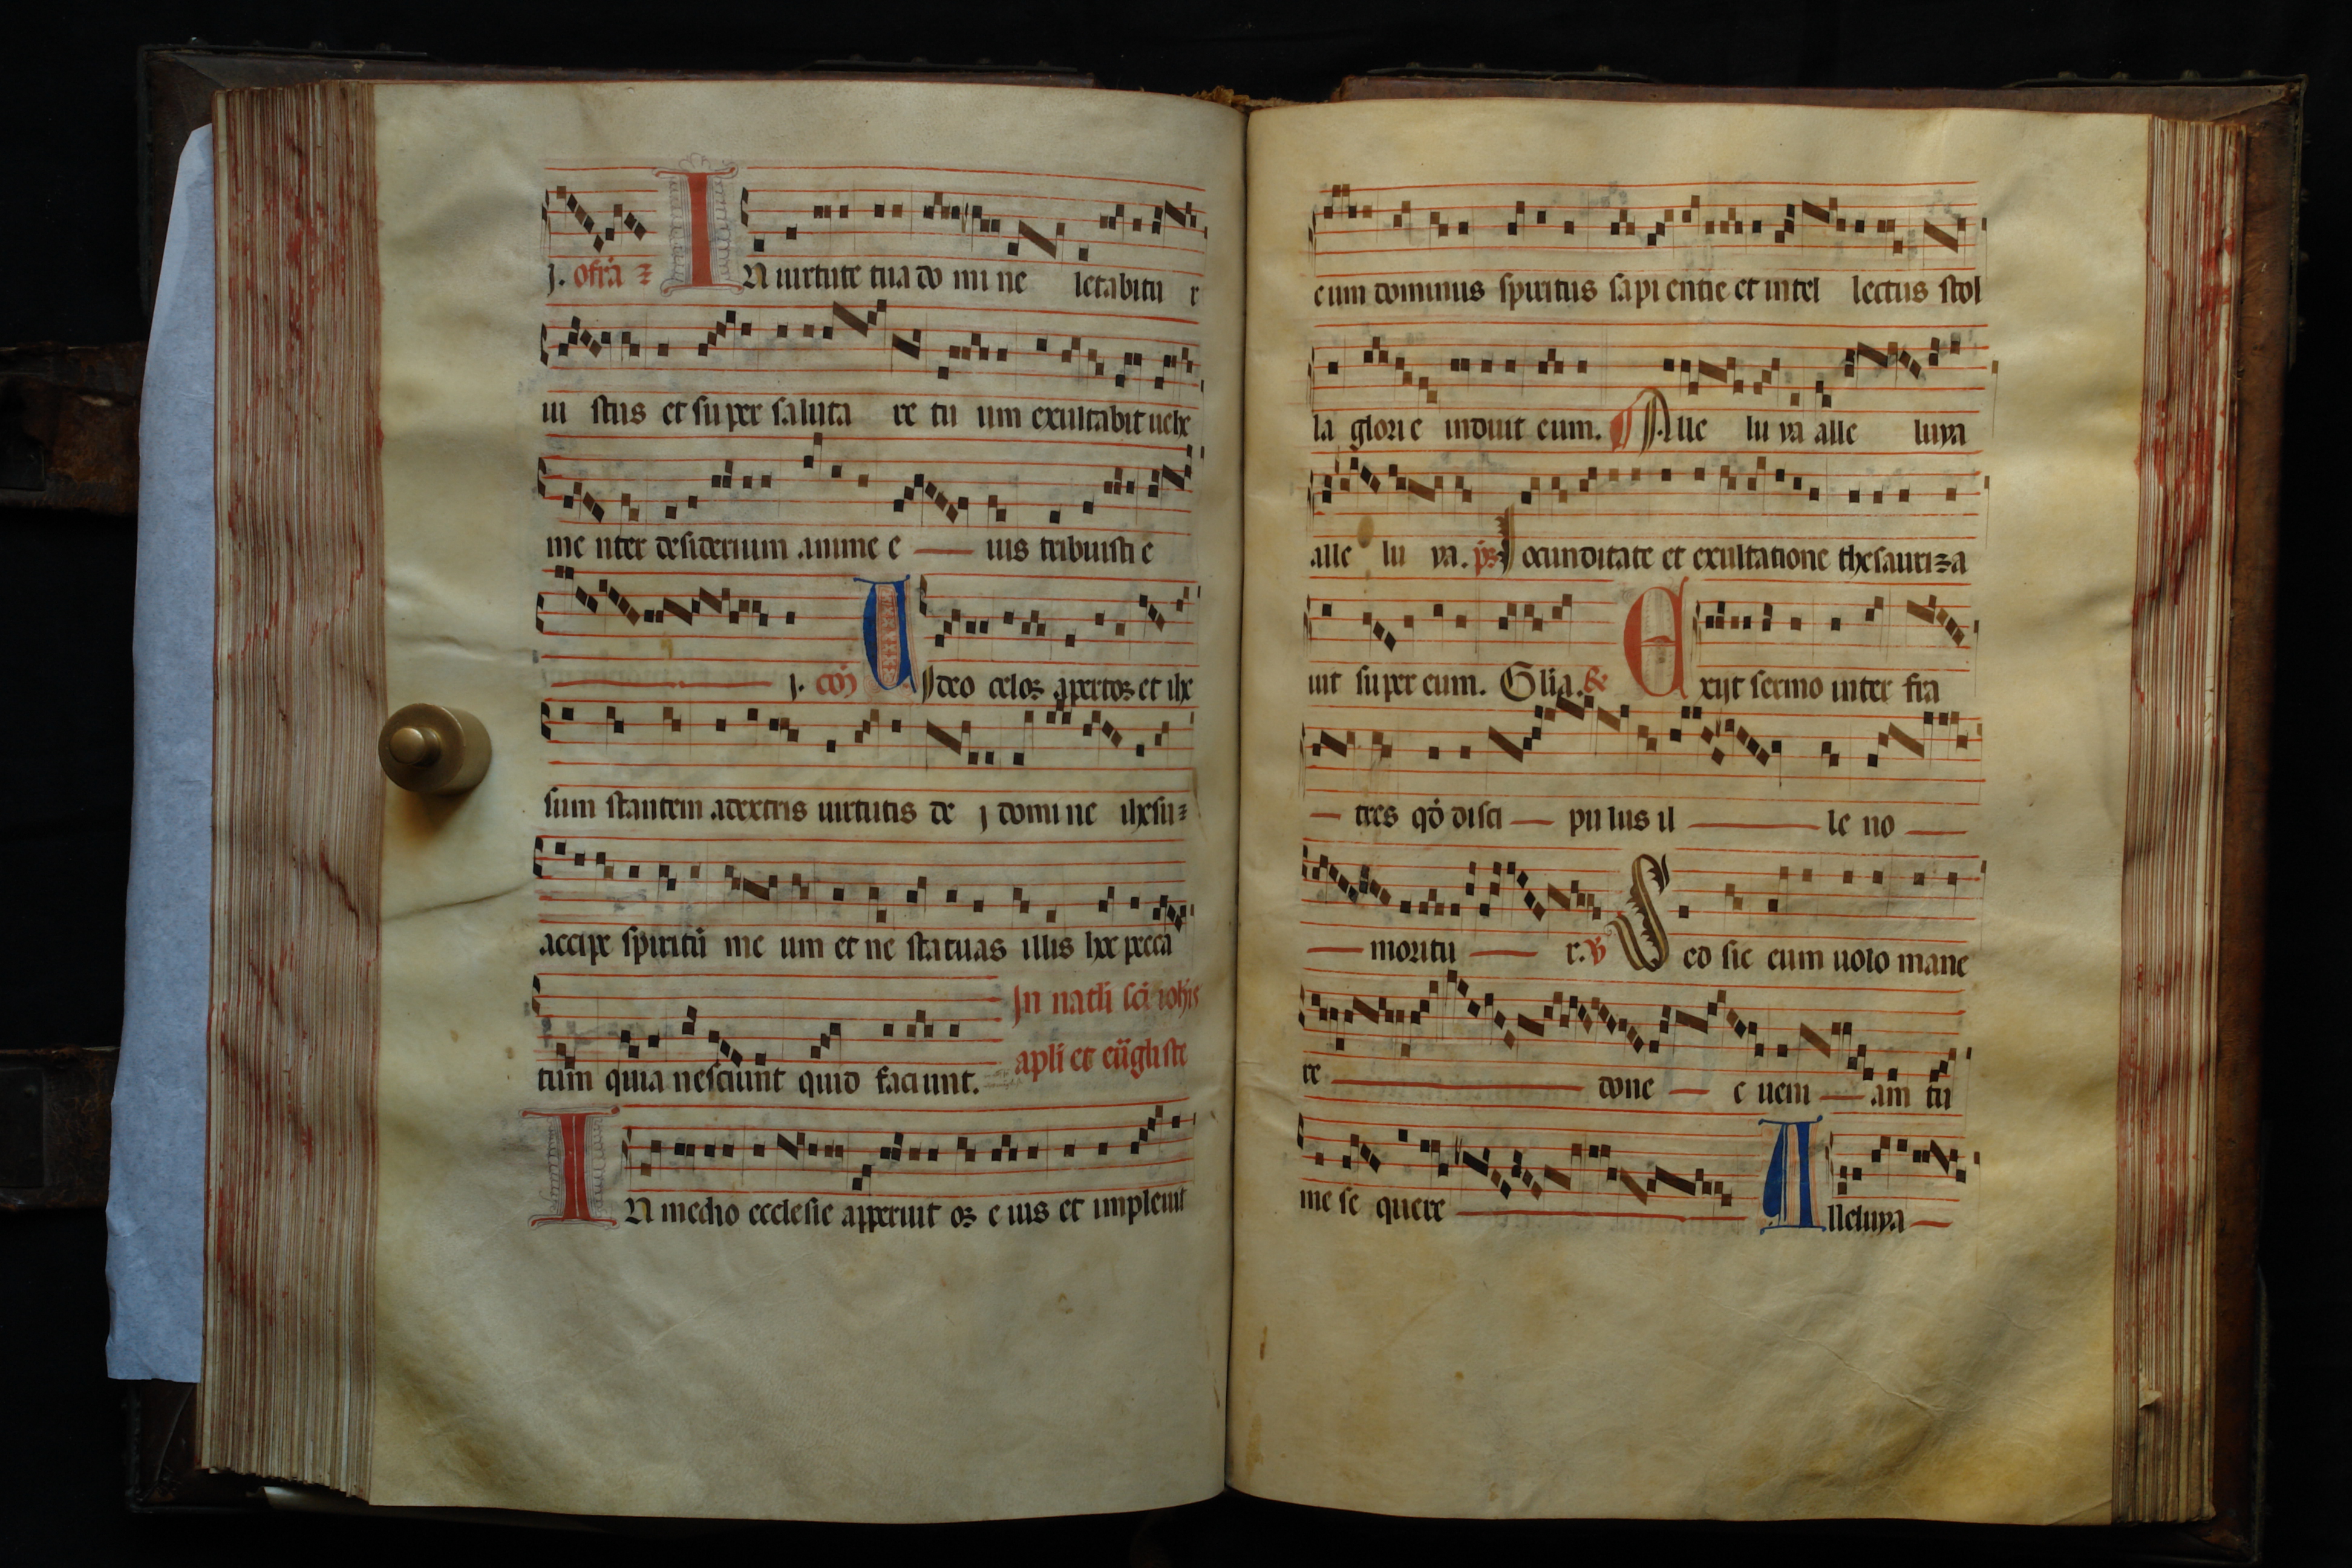 j. offā
IN uirtute tua do mi ne letabitu r
iu stus et super saluta re tu um exultabit uehe
me nter desiderium anime e ius tribuisti e
j. cōj UJdeo celos apertos et ihe
sum stantem adextris uirtutis de j domi ne ihesu
accipe spiritū me um et ne statuas illis hec pecca
tum quia nesciunt quid faciunt. In natli sci iohis
apli et eūgliste
IN medio ecclesie apperuit os e ius et impleuit
eum dominus spiritus sapi entie et intel lectus stol
la glori e induit eum. Alle lu ya alle luya
alle lu ya. ps Jocunditate et exultatione thesauriza
uit super eum. Glia. Exijt sermo inter fra
tres qđ disci pu lus il le no
moritu r. V Sed sic eum uolo mane
re done c ueni am tu
me se quere Alleluya